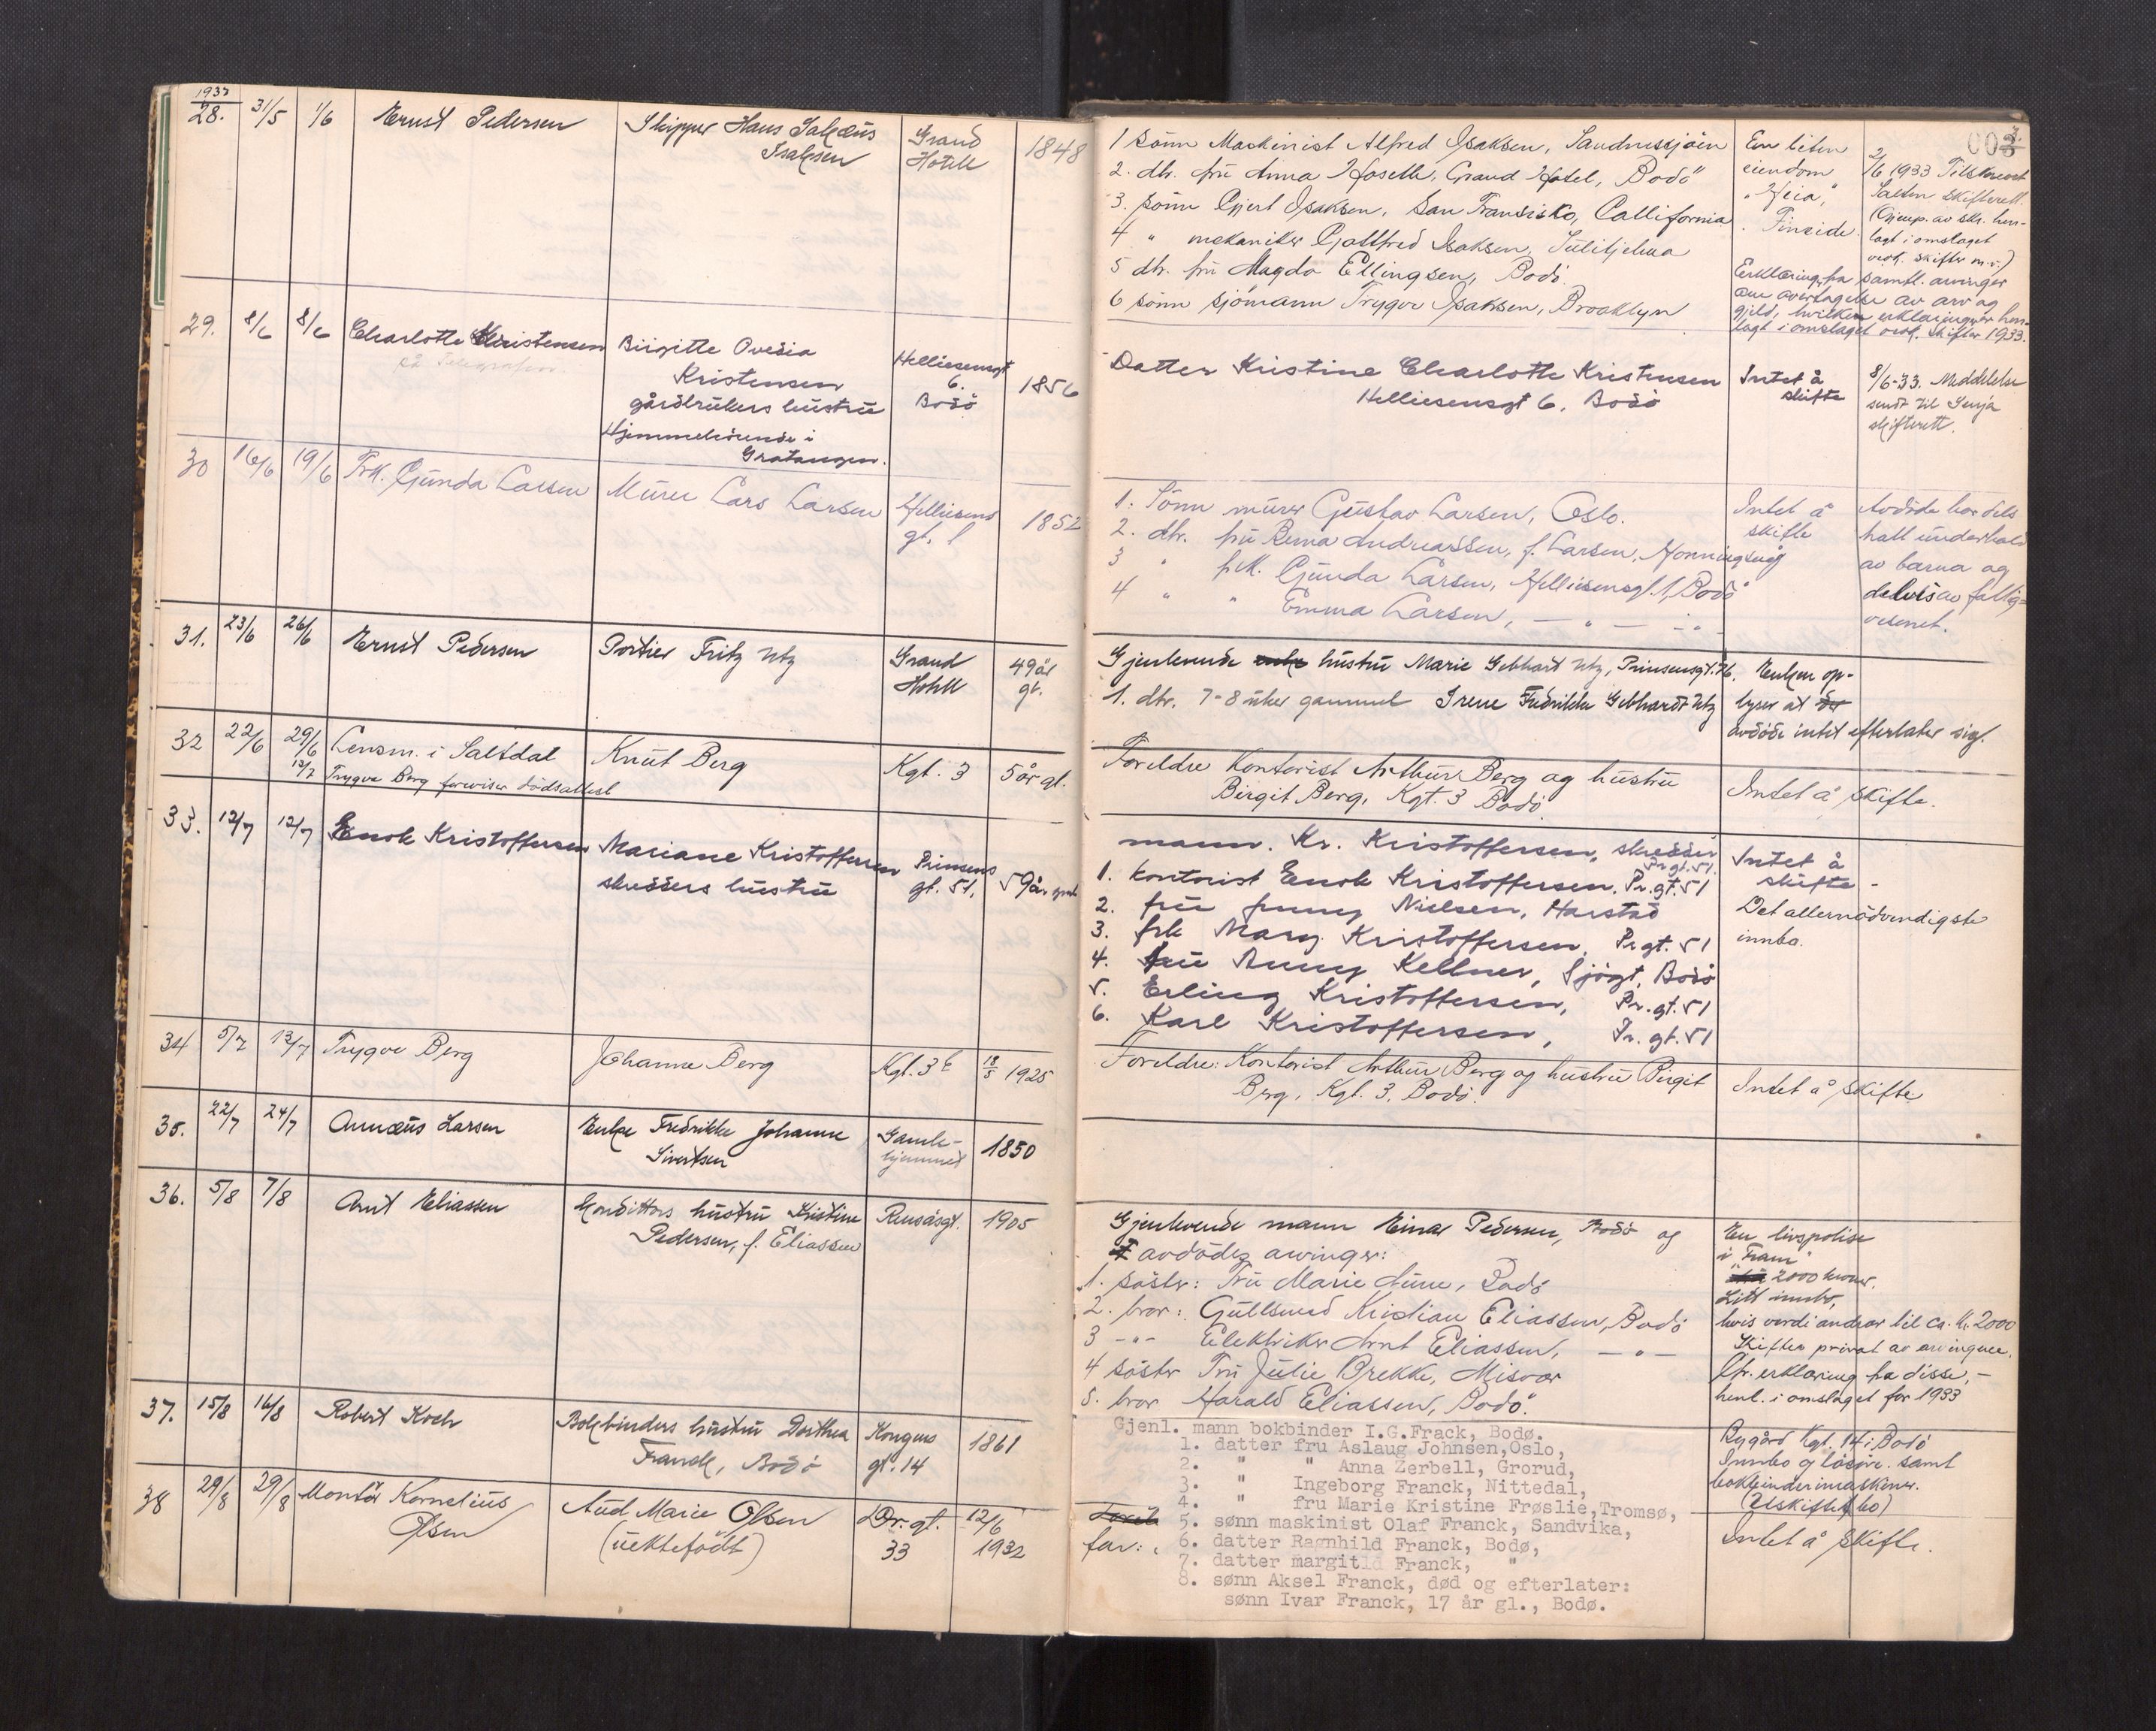 1933
28. 31/5 1/6 Ernst Pedersen Skipper Hans Isakæus Grand 1848
Isaksen Hotell
29. 8/6 8/6 Charlotte Kristensen Birgitte Ovedia Helliesensgt
Kristensen 6. 1856
gårdbrukers hustru Bodö
Hjemmehörende i
Gratangen.
30 16/6 19/6 Frk. Gunda Larsen Murer Lars Larsen Helliesens 1852
gt. 1
31. 23/6 26/6 Ernst Pedersen Portier Fritz Utz Grand 49 år
Hotell gl.
32 22/6 29/6 Lensm. i Saltdal Knut Berg Kgt. 3 5 år gl.
12/7 Trygve Berg foreviser dödsattest
33. 12/7 12/7 Enok Kristoffersen Mariane Kristoffersen Prinsens 59 år
skredders hustru gt. 51.
34 5/7 13/7 Trygve Berg Johanne Berg Kgt. 3 b 18/5 1925
35. 22/7 24/7 Annæus Larsen Enke Fredrikke Johanne Gamle- 1850
Sivertsen hjemmet
36. 5/8 7/8 Arnt Eliassen Konditors hustru Kristine Rensåsgt. 1905
Pedersen, f. Eliassen
37. 15/8 16/8 Robert Koch Bokbinders hustru Dorthea Kongens 1861
Franck, Bodö gt. 14
38 29/8 29/8 Montör Kornelius Aud Marie Olsen Dr. gt. 12/6
Olsen (uektefödt) 33 1932
1 sönn Maskinist Alfred Isaksen, Sandnessjöen
2. dtr. fru Anna Hoseth, Grand Hotel, Bodö
3. sönn Gjert Isaksen, San Fransisko, Callifornia
4 " mekaniker Gottfred Isaksen, Sulitjelma
5 dtr. fru Magda Ellingsen, Bodö
6 sönn sjömann Trygve Isaksen, Brooklyn
En liten
eiendom
"Heia",
Finneide
2/6 1933 Tilskrevet
Salten skifterett.
(Gjenp. av skr. hen-
lagt i omslaget
vedk. skifter m.v.)
Erklæring fra samtl. arvinger
om overtagelse av arv og
gjeld, hvilken erklæring er hen-
lagt i omslaget vedk. skifter 1933.
Datter Kristine Charlotte Kristensen Intet å
Helliesensgt 6. Bodö skifte
8/6-33. Meddelelse
sendt til Senja
skifterett.
1. Sönn murer Gustav Larsen, Oslo. Intet å
2. dtr. fru Berna Andreassen, f. Larsen, Honningsvåg skifte
3 " frk. Gunda Larsen, Helliesensgt. 1, Bodö
4 " " Emma Larsen, — " — " —
Avdöde har dels
hatt underhold
av barna og
delvis av fattig-
vesenet.
Gjenlevende enke hustru Marie Gebhart Utz, Prinsensgt. 76. Enken op-
1. dtr. 7-8 uker gammel Irene Fredrikke Gebhardt Utz lyser at
avdöde intet efterlater sig.
Foreldre Kontorist Arthur Berg og hustru Intet å skifte.
Birgit Berg, Kgt. 3 Bodö
mann. Kr. Kristoffersen, skredder Pr.gt. 51. Intet å
1. kontorist Enok Kristoffersen. Pr. gt. 51 skifte -
2. fru Jenny Nielsen, Harstad Det allernödvendigste
3. frk Mary Kristoffersen, Pr gt. 51 innbo.
4. fru Anny Kellner, Sjögt, Bodö
5. Erling Kristoffersen, Pr. gt. 51
6. Karl Kristoffersen, Pr. gt. 51
Foreldre: Kontorist Arthur Berg og hustru Birgit Intet å skifte
Berg, Kgt. 3. Bodö.
Gjenlevende mann Einar Pedersen, Bodö og
avdödes arvinger:
1. söster: Fru Marie Aune, Bodö
2. bror: Gullsmed Kristian Eliassen, Bodö
3 -"- Elektriker Arnt Eliassen, — " —
4 söster Fru Julie Brekke, Misvær
5. bror Harald Eliassen, Bodö.
En livspolise
i "Fram"
2000 kroner.
Litt innbo,
hvis verdi andrar til ca. kr. 2000
Skiftes privat av arvingene.
Cfr. erklæring fra disse, -
henl. i omslaget for 1933
Gjenl. mann bokbinder I.G.Frack, Bodø.
1. datter fru Aslaug Johnsen,Oslo,
2. " " Anna Zerbell, Grorud,
3. " Ingeborg Franck, Nittedal,
4. " fru Marie Kristine Frøslie,Tromsø,
5. sønn maskinist Olaf Franck, Sandvika,
6. datter Ragnhild Franck, Bodø,
7. datter margit Franck, "
8. sønn Aksel Franck, død og efterlater:
sønn Ivar Franck, 17 år gl., Bodø.
Bygård Kgt. 14 i Bodö
Innbo og lösöre. samt
bokbindermaskiner.
(Uskiftet bo)
far:
Intet å skifte.